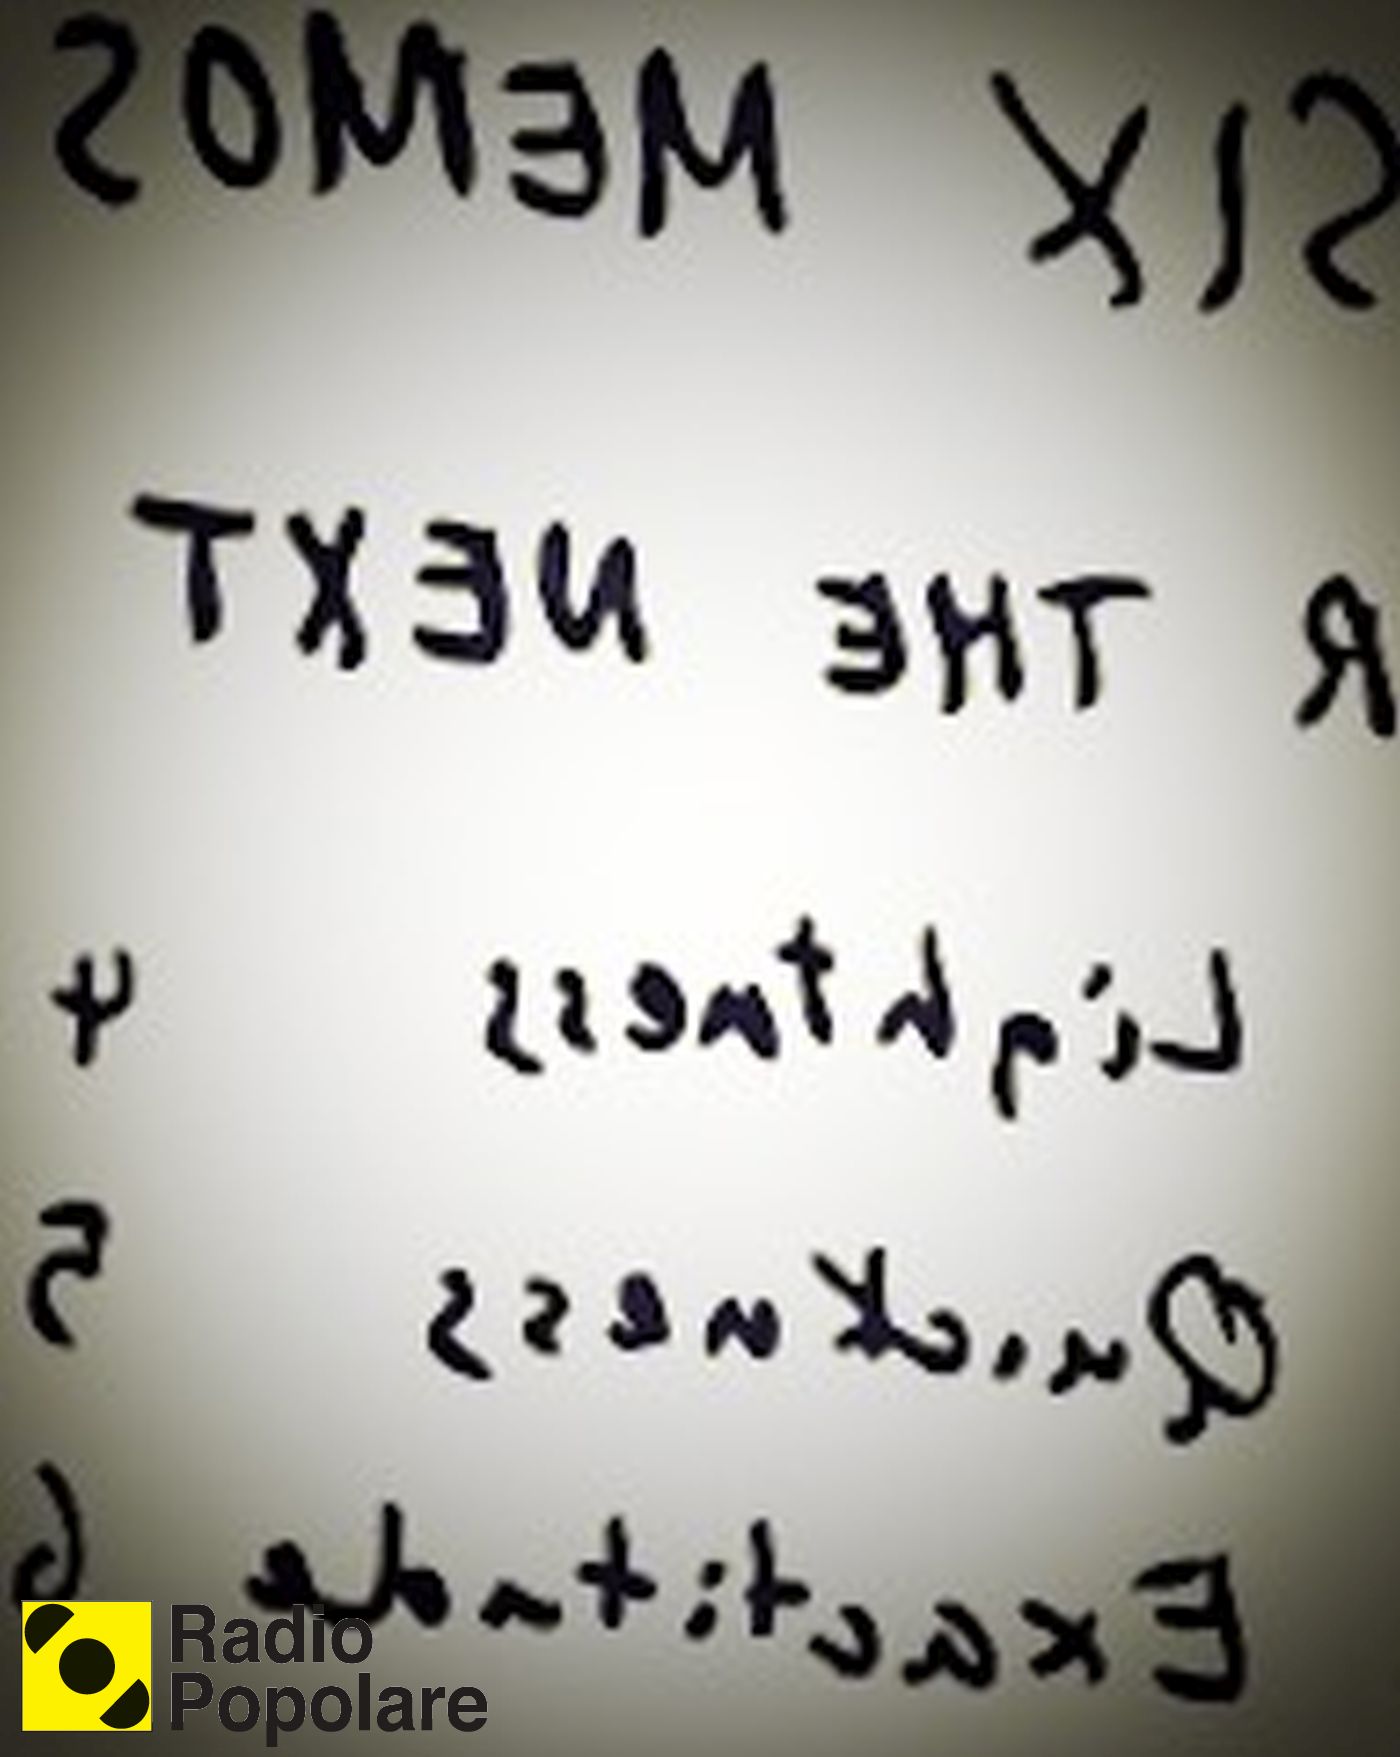 SIX MEMOS
R THE NEXT
Lightness 4
Quickness 5
Exactitude 6
Radio
Popolare